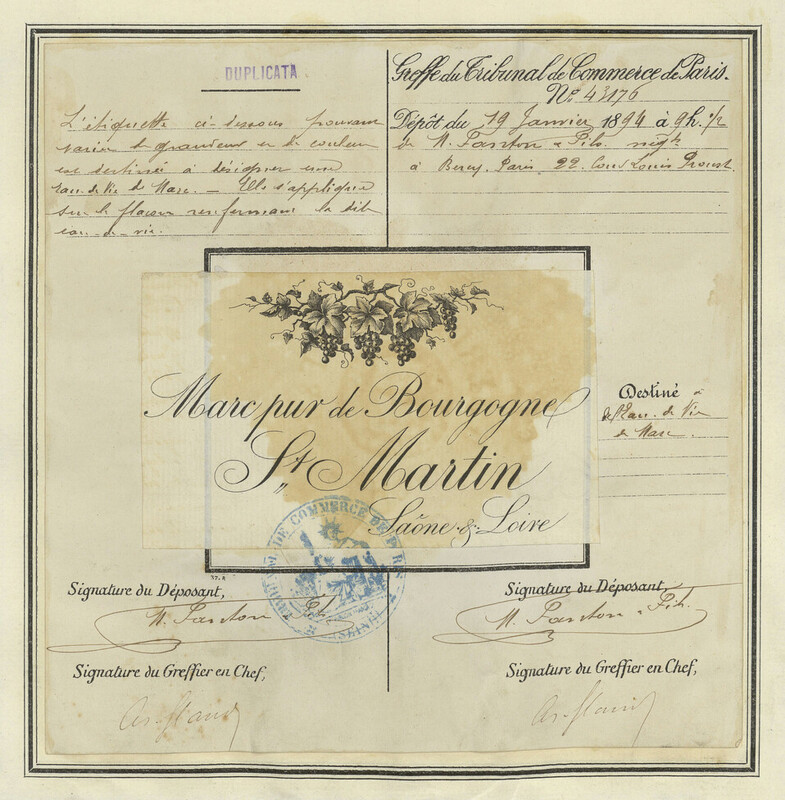 DUPLICATA
L'étiquette ci-dessous pouvant
varier de grandeur et de couleur
est destinée à désigner une
eau de Vie de Marc. — Elle s'applique
sur le flacon renfermant la dite
eau-de-vie.
Greffe du Tribunal de Commerce de Paris.
No. 43176
Dépôt du 19 Janvier 1894 à 9h. 1/2
de M. Fanton & Fils. négts
à Bercy. Paris. 22. Cour Louis Proust.
Marc pur de Bourgogne
St Martin
Saône & Loire
Destiné à
de l'Eau. de Vie
de Marc.
TRIBUNAL DE COMMERCE DE PARIS
SEINE
Signature du Déposant,
M. Fanton Fils
Signature du Greffier en Chef,
Signature du Déposant,
M. Fanton & Fils.
Signature du Greffier en Chef,